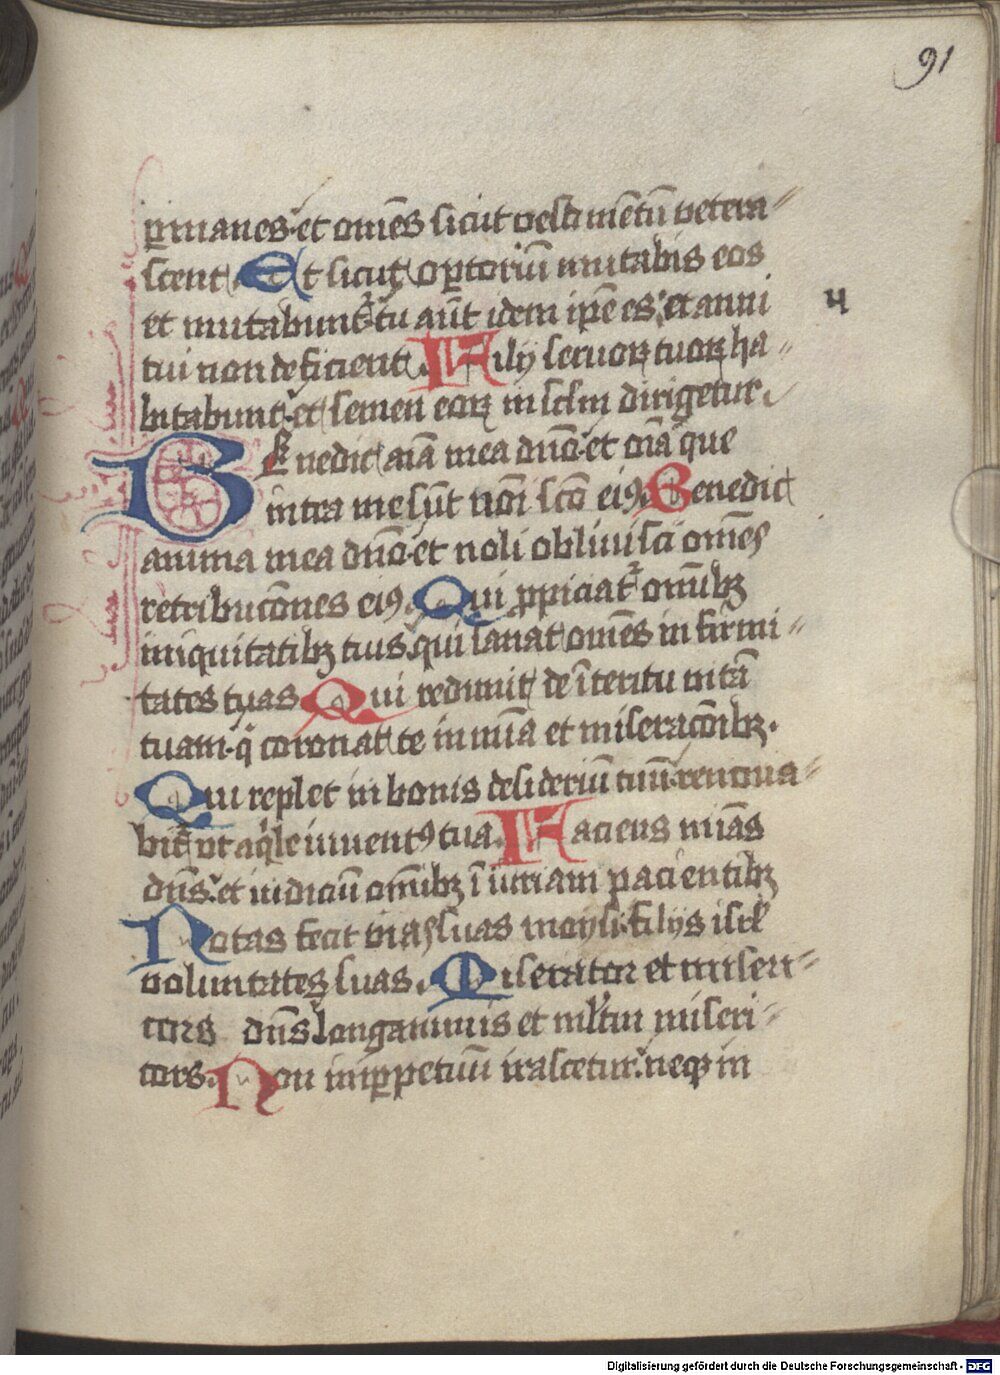 91
ꝑmanes et om̄es sicut vestimētū vetera
scent Et sicut oꝑtoriū mutabis eos
et mutabunt᷑ tu aūt idem ip̄e es et anni
4
tui non deficient. Filij seruoꝝ tuoꝝ ha
bitabunt et semen eoꝝ in sc̄lm dirigetur.
Benedic aīa mea dn̄o et oīa que
intra me sūt nōi sc̄o eiꝰ. Benedic
anima mea dn̄o et noli obliuisci om̄es
retribucōnes eiꝰ. Qui ꝓpiciat᷑ om̄ibꝫ
iniquitatibꝫ tuis qui sanat om̄es infirmi
tates tuas Qui redimit de īteritu vitā
tuam q̄ coronat te in mīa et miseracōnibꝫ.
Qui replet in bonis desideriū tuū renoua
bit᷑ vt aq̄le iuuentꝰ tua. Faciens mīas
dn̄s et iudiciū om̄ibꝫ īiuriam pacientibꝫ
Notas fecit vias suas moysi filijs isrl̄
voluntates suas. Miserator et miseri
cors dn̄s longanimis et ml̄tm miseri
cors. Non inꝑpetuū irascetur neqꝫ in
Digitalisierung gefördert durch die Deutsche Forschungsgemeinschaft - DFG